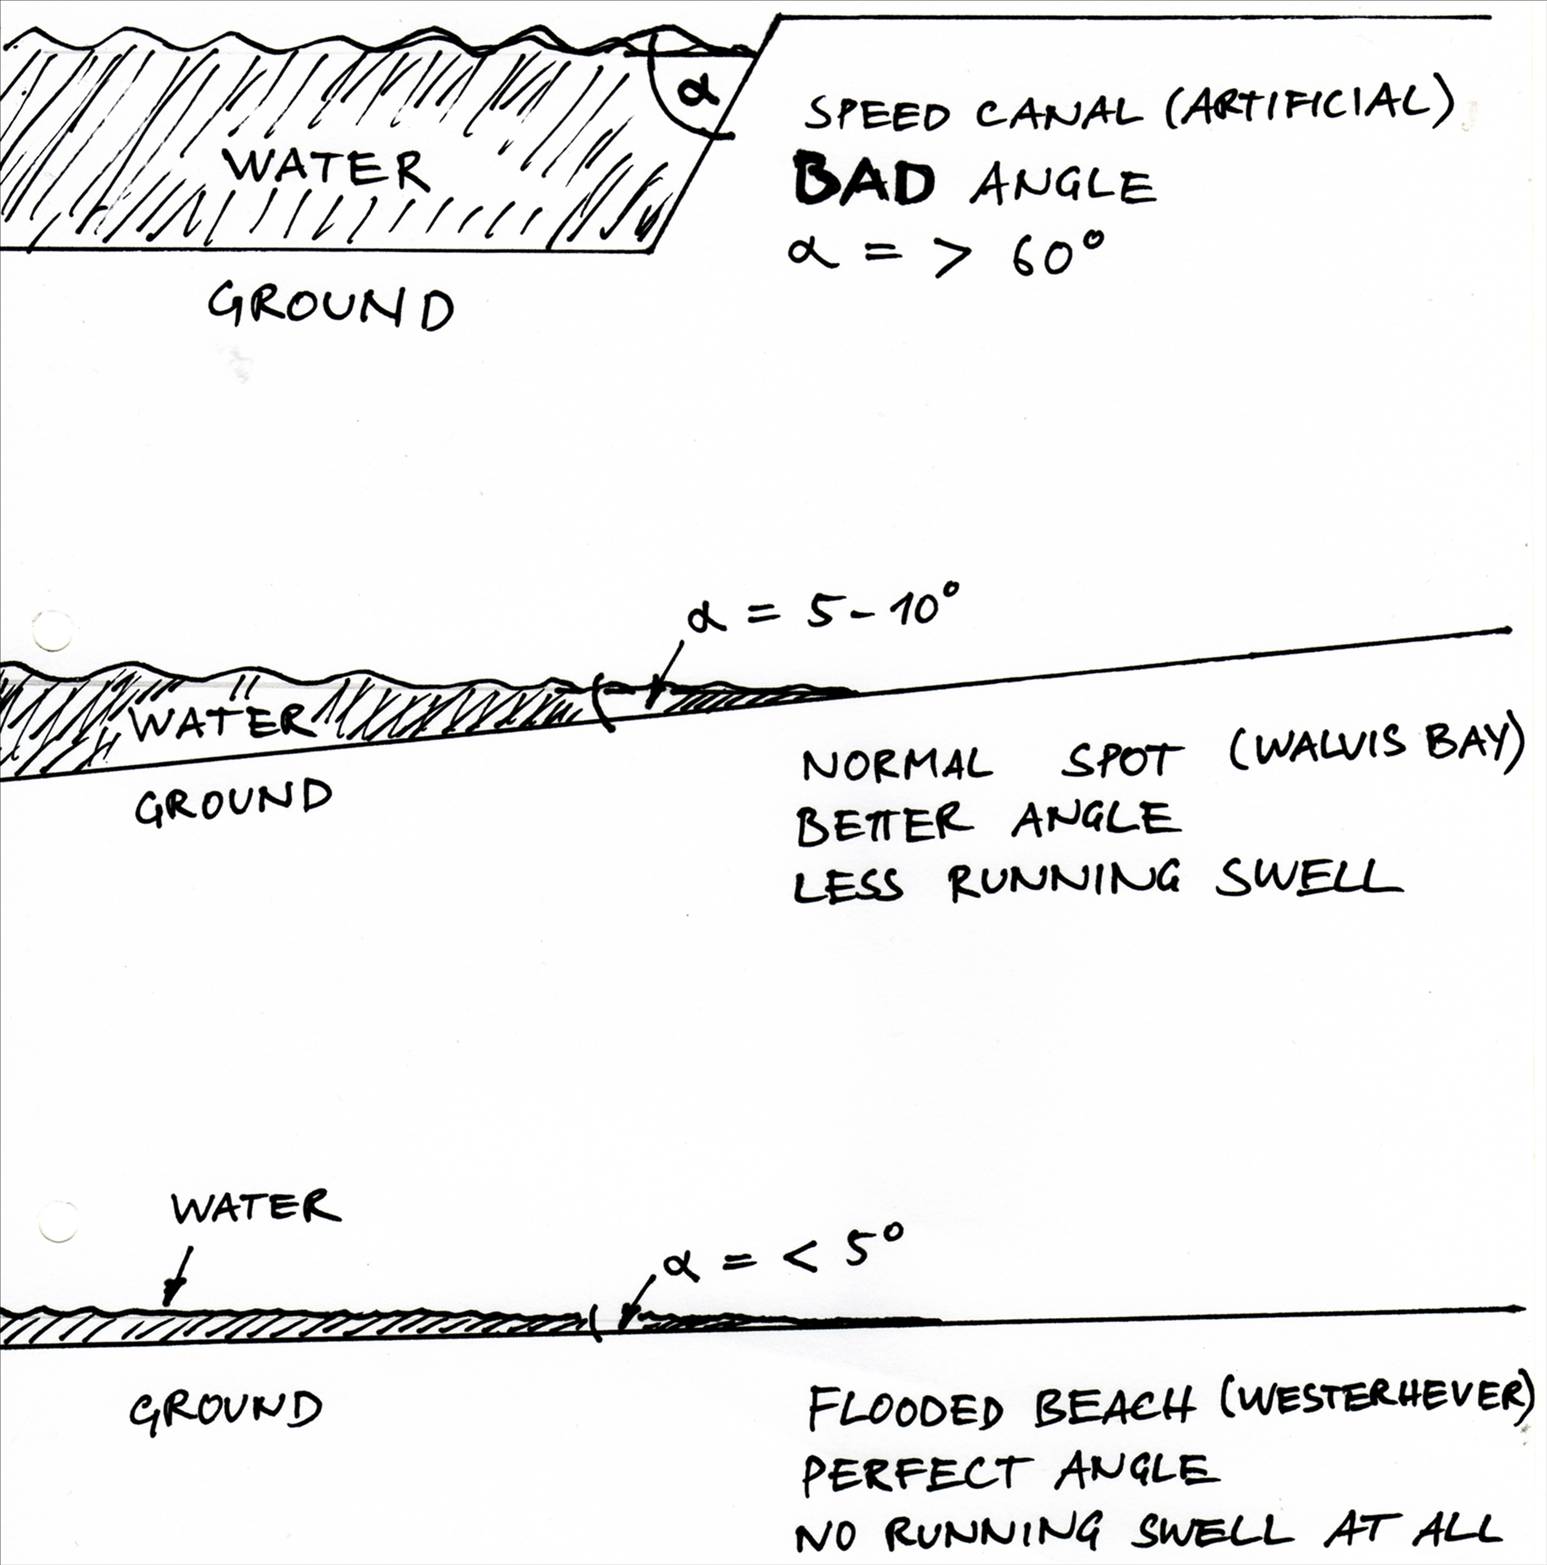 α
SPEED CANAL (ARTIFICIAL)
BAD ANGLE
α = > 60°
WATER
GROUND
α = 5 - 10°
WATER
GROUND
NORMAL SPOT (WALVIS BAY)
BETTER ANGLE
LESS RUNNING SWELL
WATER
α = < 5°
GROUND
FLOODED BEACH (WESTERHEVER)
PERFECT ANGLE
NO RUNNING SWELL AT ALL